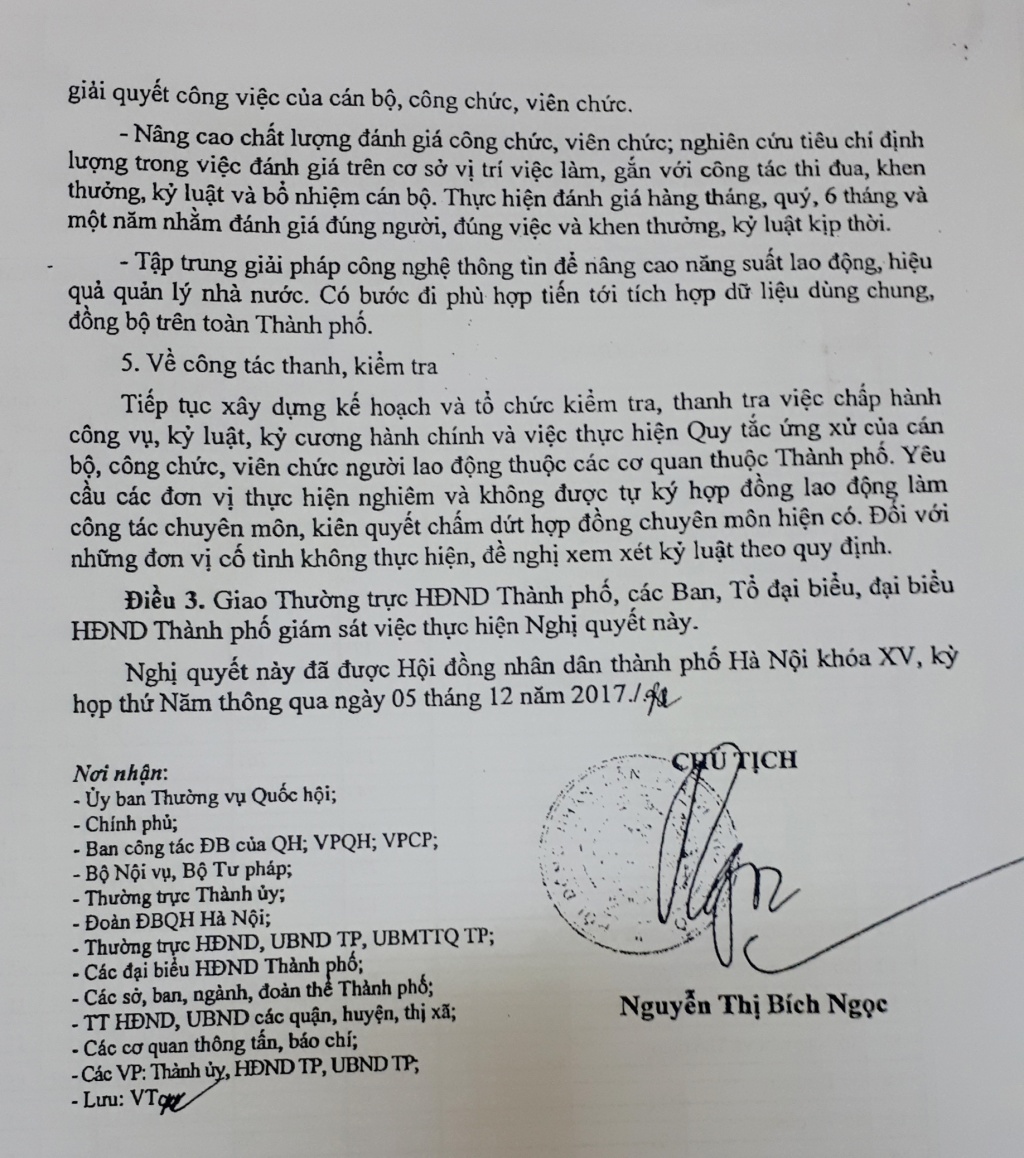 giải quyết công việc của cán bộ, công chức, viên chức.
- Nâng cao chất lượng đánh giá công chức, viên chức; nghiên cứu tiêu chí định
lượng trong việc đánh giá trên cơ sở vị trí việc làm, gắn với công tác thi đua, khen
thưởng, kỷ luật và bổ nhiệm cán bộ. Thực hiện đánh giá hàng tháng, quý, 6 tháng và
một năm nhằm đánh giá đúng người, đúng việc và khen thưởng, kỷ luật kịp thời.
- Tập trung giải pháp công nghệ thông tin để nâng cao năng suất lao động, hiệu
quả quản lý nhà nước. Có bước đi phù hợp tiến tới tích hợp dữ liệu dùng chung,
đồng bộ trên toàn Thành phố.
5. Về công tác thanh, kiểm tra
Tiếp tục xây dựng kế hoạch và tổ chức kiểm tra, thanh tra việc chấp hành
công vụ, kỷ luật, kỷ cương hành chính và việc thực hiện Quy tắc ứng xử của cán
bộ, công chức, viên chức người lao động thuộc các cơ quan thuộc Thành phố. Yêu
cầu các đơn vị thực hiện nghiêm và không được tự ký hợp đồng lao động làm
công tác chuyên môn, kiên quyết chấm dứt hợp đồng chuyên môn hiện có. Đối với
những đơn vị cố tình không thực hiện, đề nghị xem xét kỷ luật theo quy định.
Điều 3. Giao Thường trực HĐND Thành phố, các Ban, Tổ đại biểu, đại biểu
HĐND Thành phố giám sát việc thực hiện Nghị quyết này.
Nghị quyết này đã được Hội đồng nhân dân thành phố Hà Nội khóa XV, kỳ
họp thứ Năm thông qua ngày 05 tháng 12 năm 2017./.
CHỦ TỊCH
Nơi nhận:
- Ủy ban Thường vụ Quốc hội;
- Chính phủ;
- Ban công tác ĐB của QH; VPQH; VPCP;
- Bộ Nội vụ, Bộ Tư pháp;
- Thường trực Thành ủy;
- Đoàn ĐBQH Hà Nội;
- Thường trực HĐND, UBND TP, UBMTTQ TP;
- Các đại biểu HĐND Thành phố;
- Các sở, ban, ngành, đoàn thể Thành phố;
- TT HĐND, UBND các quận, huyện, thị xã;
- Các cơ quan thông tấn, báo chí;
- Các VP: Thành ủy, HĐND TP, UBND TP;
- Lưu: VT
Nguyễn Thị Bích Ngọc